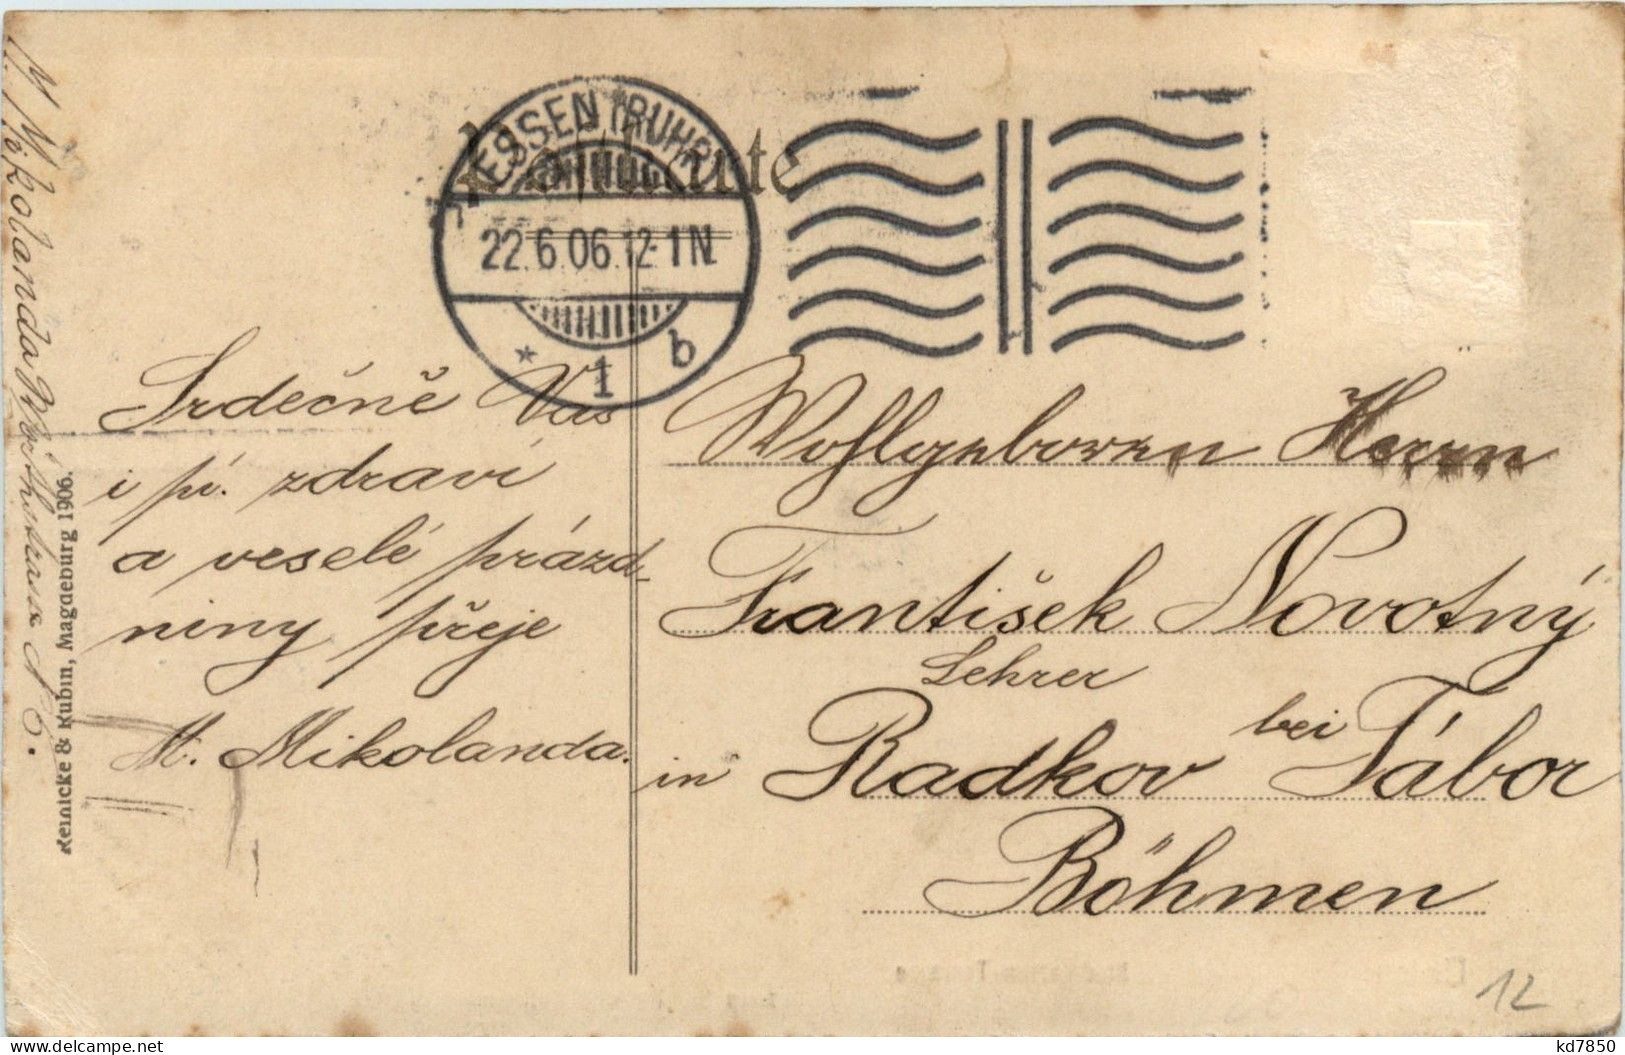 Postkarte
ESSEN (RUHR)
22.6.06.12-1N.
* 1 b
Srdečně Vás
i pí. zdraví
a veselé prázd-
niny přeje
M. Mikolanda.
Wohlgeboren Herrn
František Novotný
Lehrer
in Radkov bei Tábor
Böhmen
12
M. Mikolanda
Reinicke & Rubin, Magdeburg 1906.
kd7850